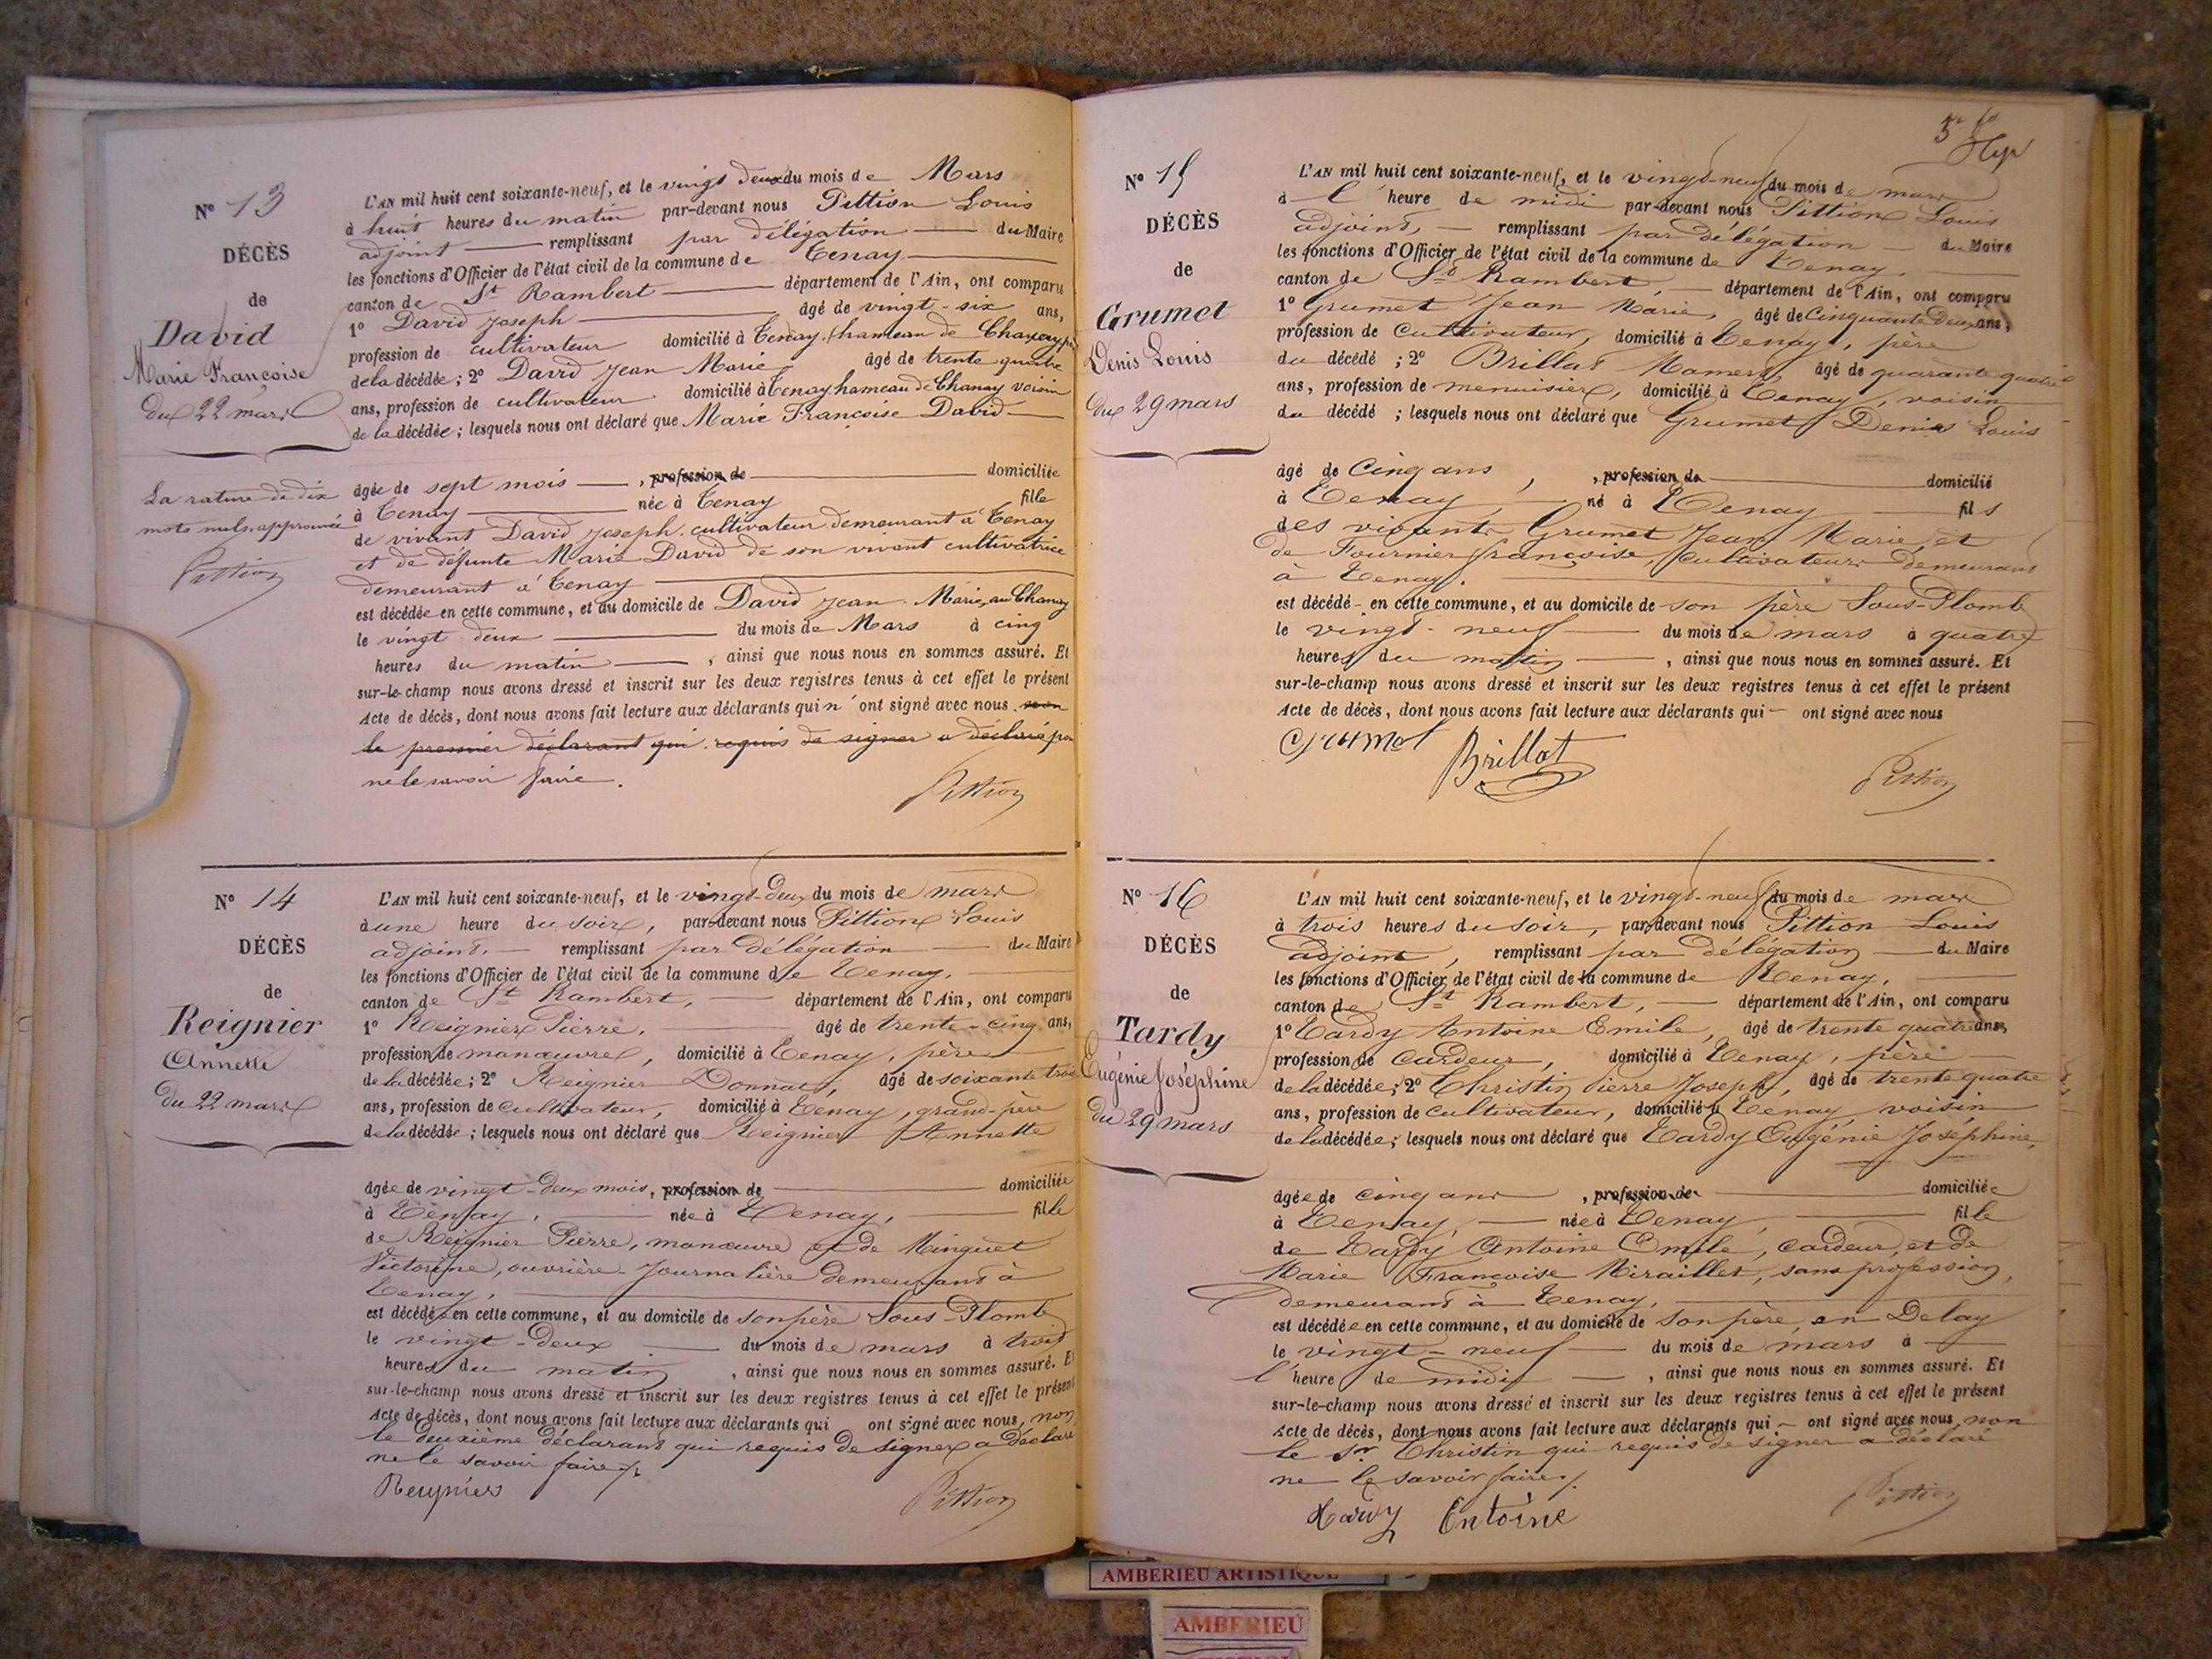 N° 13
DÉCÈS
de
David
Marie Françoise
du 22 mars
La rature de dix
mots nuls approuvée
Pittion
L'AN mil huit cent soixante-neuf, et le vingt deux du mois de Mars
à huit heures du matin par-devant nous Pittion Louis
adjoint remplissant par délégation du Maire
les fonctions d'Officier de l'état civil de la commune de Tenay
canton de St Rambert département de l'Ain, ont comparu
1° David Joseph âgé de vingt-six ans,
profession de cultivateur domicilié à Tenay, hameau de Chanay
de la décédée ; 2° David Jean Marie âgé de trente quatre
ans, profession de cultivateur domicilié à Tenay hameau de Chanay voisin
de la décédée ; lesquels nous ont déclaré que Marie Françoise David
âgée de sept mois , profession de domiciliée
à Tenay née à Tenay fille
de vivant David Joseph cultivateur demeurant à Tenay
et de défunte Marie David de son vivant cultivatrice
demeurant à Tenay
est décédée en cette commune, et au domicile de David Jean Marie, au Chanay
le vingt deux du mois de Mars à cinq
heures du matin , ainsi que nous nous en sommes assuré. Et
sur-le-champ nous avons dressé et inscrit sur les deux registres tenus à cet effet le présent
Acte de décès, dont nous avons fait lecture aux déclarants qui n'ont signé avec nous
le premier déclarant qui requis de signer a déclaré
ne le savoir faire.
Pittion
N° 14
DÉCÈS
de
Reignier
Annette
du 22 mars
L'AN mil huit cent soixante-neuf, et le vingt-deux du mois de mars
à une heure du soir, par-devant nous Pittion Louis
adjoint, remplissant par délégation du Maire
les fonctions d'Officier de l'état civil de la commune de Tenay,
canton de St Rambert, département de l'Ain, ont comparu
1° Reignier Pierre, âgé de trente-cinq ans,
profession de manœuvre, domicilié à Tenay, père
de la décédée ; 2° Reignier Donnat, âgé de soixante trois
ans, profession de cultivateur, domicilié à Tenay, grand-père
de la décédée ; lesquels nous ont déclaré que Reignier Annette
âgée de vingt-deux mois, profession de domiciliée
à Tenay, née à Tenay, fille
de Reignier Pierre, manœuvre et de Minguet
Victorine, ouvrière-journalière demeurant à
Tenay,
est décédée en cette commune, et au domicile de son père Sous-Plomb
le vingt-deux du mois de mars à trois
heures du matin , ainsi que nous nous en sommes assuré. Et
sur-le-champ nous avons dressé et inscrit sur les deux registres tenus à cet effet le présent
Acte de décès, dont nous avons fait lecture aux déclarants qui ont signé avec nous, non
le deuxième déclarant qui requis de signer a déclaré
ne le savoir faire./.
Reignier
Pittion
N° 15
DÉCÈS
de
Grumet
Denis Louis
du 29 mars
L'AN mil huit cent soixante-neuf, et le vingt-neuf du mois de mars
à l'heure de midi par-devant nous Pittion Louis
adjoint, remplissant par délégation du Maire
les fonctions d'Officier de l'état civil de la commune de Tenay,
canton de St Rambert, département de l'Ain, ont comparu
1° Grumet Jean Marie, âgé de Cinquante deux ans,
profession de Cultivateur, domicilié à Tenay, père
du décédé ; 2° Brillat Mamert, âgé de quarante quatre
ans, profession de menuisier, domicilié à Tenay, voisin
du décédé ; lesquels nous ont déclaré que Grumet Denis Louis
âgé de Cinq ans , profession de domicilié
à Tenay, né à Tenay fils
des vivants Grumet Jean Marie, et
de Fournier françoise, Cultivateurs demeurant
à Tenay.
est décédé en cette commune, et au domicile de son père Sous-Plomb
le vingt-neuf du mois de mars à quatre
heures du matin , ainsi que nous nous en sommes assuré. Et
sur-le-champ nous avons dressé et inscrit sur les deux registres tenus à cet effet le présent
Acte de décès, dont nous avons fait lecture aux déclarants qui ont signé avec nous
Grumet
Brillat
Pittion
N° 16
DÉCÈS
de
Tardy
Eugénie Joséphine
du 29 mars
L'AN mil huit cent soixante-neuf, et le vingt-neuf du mois de mars
à trois heures du soir, par-devant nous Pittion Louis
adjoint, remplissant par délégation du Maire
les fonctions d'Officier de l'état civil de la commune de Tenay,
canton de St Rambert, département de l'Ain, ont comparu
1° Tardy Antoine Emile, âgé de trente quatre ans,
profession de Cardeur, domicilié à Tenay, père
de la décédée ; 2° Christin Pierre Joseph, âgé de trente quatre
ans, profession de Cultivateur, domicilié à Tenay, voisin
de la décédée ; lesquels nous ont déclaré que Tardy Eugénie Joséphine,
âgée de cinq ans , profession de domiciliée
à Tenay, née à Tenay, fille
de Tardy Antoine Emile, cardeur, et de
Marie Françoise Miraillet, sans profession,
demeurant à Tenay,
est décédée en cette commune, et au domicile de son père, en Delay
le vingt-neuf du mois de mars à
l'heure de midi , ainsi que nous nous en sommes assuré. Et
sur-le-champ nous avons dressé et inscrit sur les deux registres tenus à cet effet le présent
Acte de décès, dont nous avons fait lecture aux déclarants qui ont signé avec nous, non
le Sr Christin qui requis de signer a déclaré
ne le savoir faire./.
Tardy Antoine
Pittion
AMBERIEU ARTISTIQUE
AMBERIEU